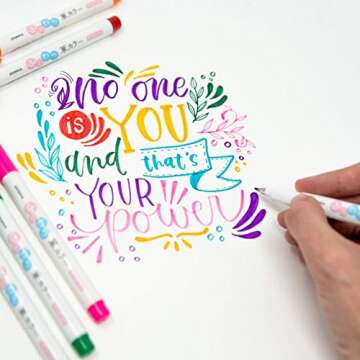 no one
is YOU
and that's
YOUR
power